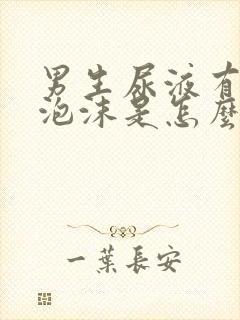 男生尿液有
泡沫是怎麼
一葉長安